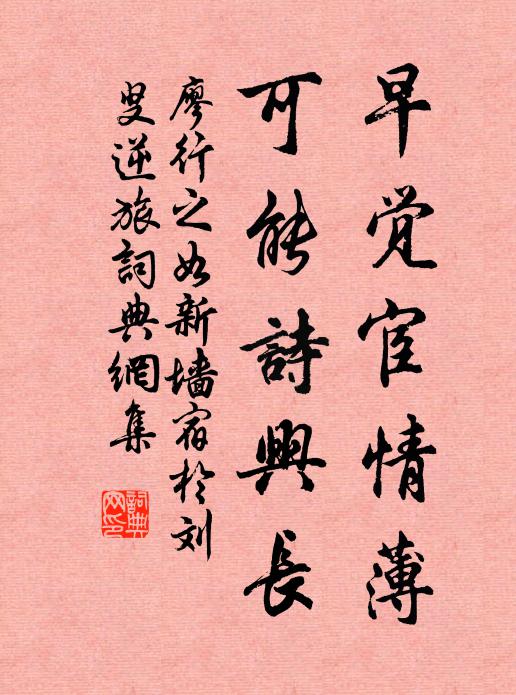 早觉宦情薄
可能詩興長
廖行之如新墙宿於刘
叟逆旅詞典網集
詞典
网印